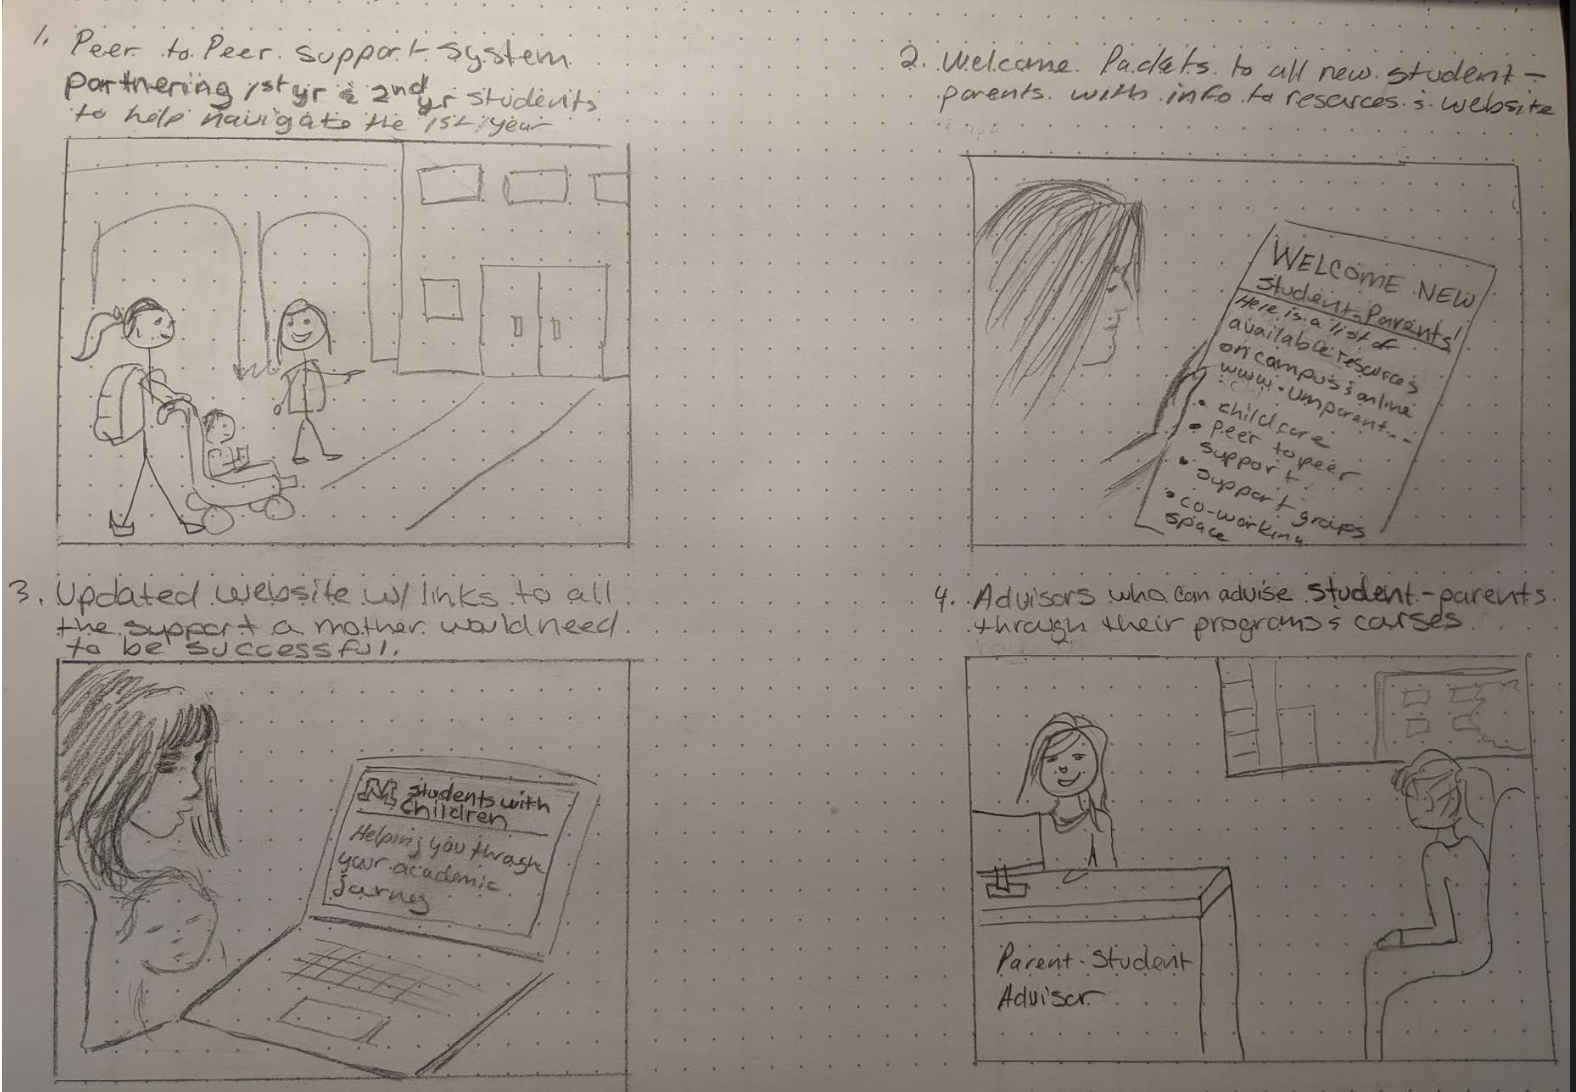 1. Peer to Peer support system
partnering 1st yr & 2nd yr students
to help navigate the 1st year
2. Welcome Packets to all new student-
parents with info to resources & website
WELCOME NEW
Student-Parents!
Here is a list of
available resources
on campus & online
www.umparent...
• childcare
• peer to peer
support
• support groups
• co-working
space
3. Updated website w/ links to all
the support a mother would need
to be successful.
N Students with
Children
Helping you through
your academic
journey
4. Advisors who can advise student-parents
through their programs & courses
Parent-Student
Advisor